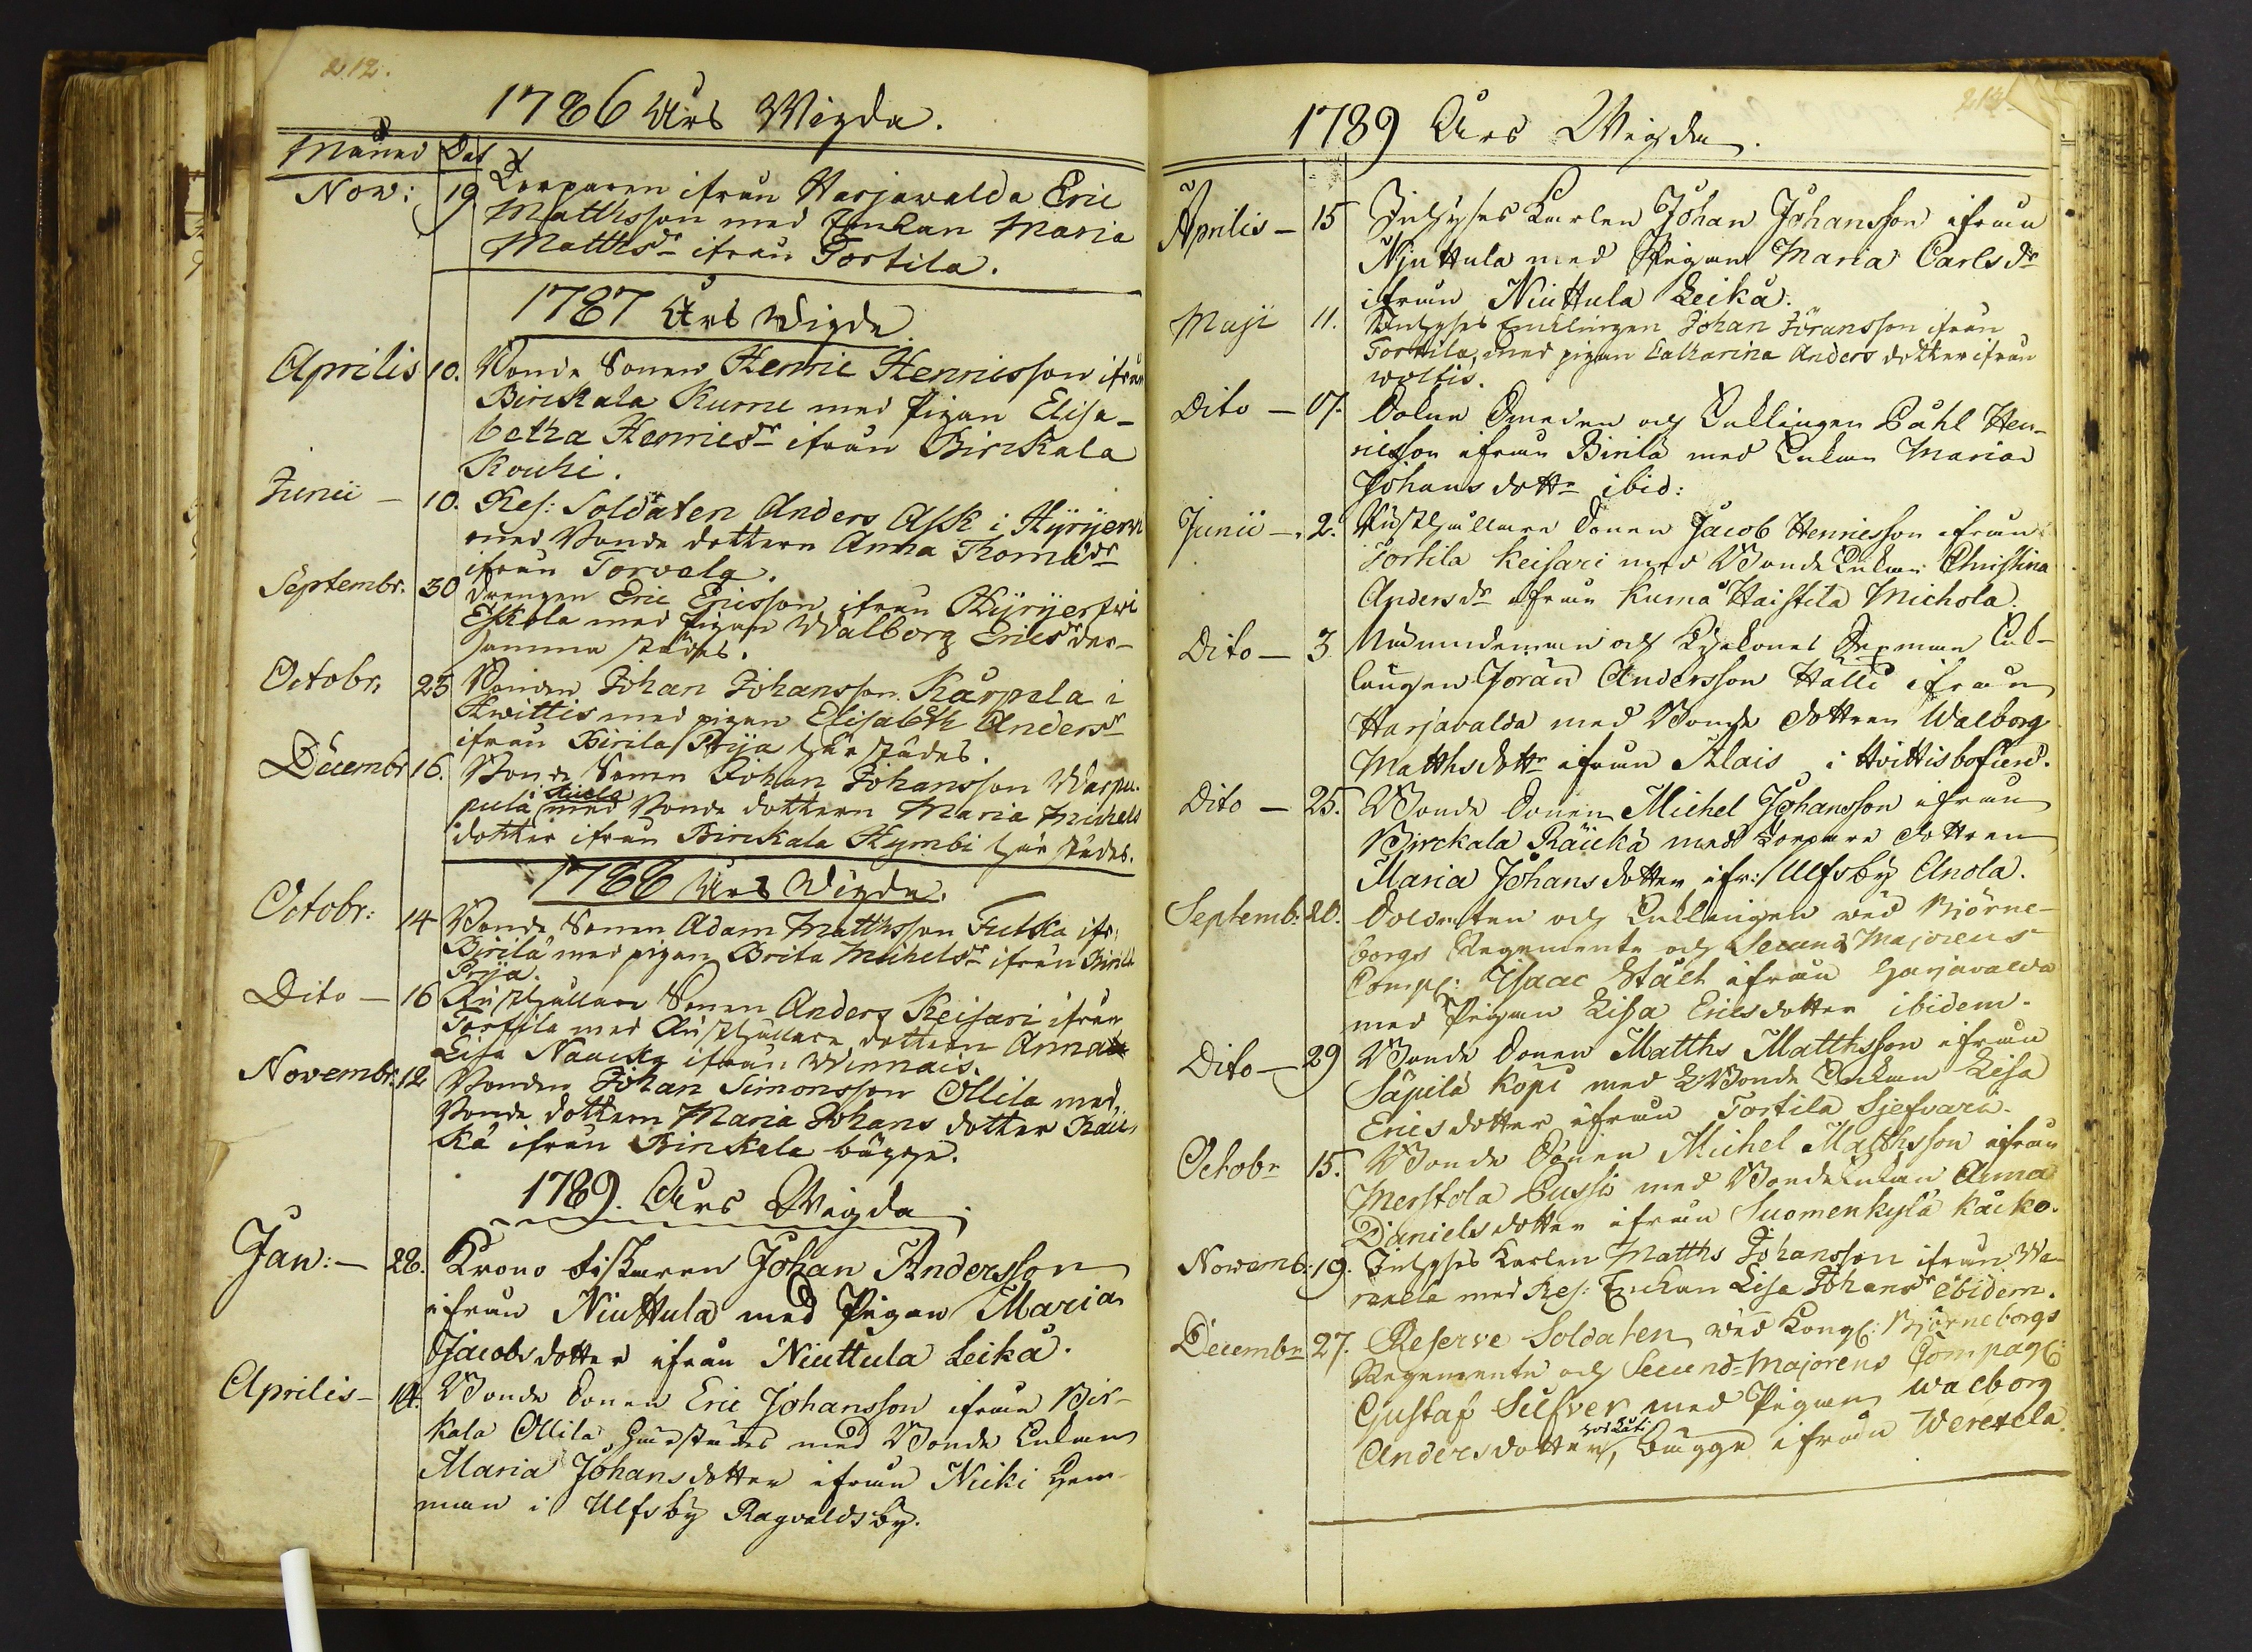 212.
1786 Års Wigda.
Månad Dat
Nov: 19 Torparen ifrån Harjawalda Eric
Matthsson med Enkan Maria
Matthsdr ifrån Torttila.
1787 Års Wigde
Aprilis 10. Bonde Sonen Henric Henricsson ifrån
Birckala Kurne med Pigan Elisa-
betha Henricsdr ifrån Birckala
Kouhi.
Junii - 10. Res: Soldaten Anders Ask i Kyrjerwi
med Bonde dottern Anna Thomædr
ifrån Torvola.
Septembr. 30 Drengen Eric Ericsson ifrån Kyrjerfwi
Eskola med Pigan Walborg Ericsdr der-
samma städes.
Octobr. 25 Bonden Johan Johansson Karpela i
Hwittis med pigan Elisabeth Andersdr
ifrån Birila Prija härstädes.
Decembr 16. Bonde Sonen Johan Johansson Warpu-
pula med Bonde dottern Maria Michels
dotter ifrån Birckala Hymbi här städes.
1788 Års Wigde.
Octobr: 14 Bonde Sonen Adam Matthsson Tutka ifr:
Birila med pigan Brita Michelsdr ifrån Birila
Prija.
Dito - 16 Rusthållare Sonen Anders Keisari ifrån
Torttila med Rusthållare dottern Anna
Lisa Naucka ifrån Winnais.
Novembr. 12 Bonden Johan Simonsson Ollila med
Bonde dottern Maria Johans dotter Räic-
kä ifrån Birckala bägge.
1789. Års Wigda
Jan: - 28. Krono fiskaren Johan Andersson
ifrån Niuttula med Pigan Maria
Jacobsdotter ifrån Niuttula Leikå.
Aprilis - 14. Bonde Sonen Eric Johansson ifrån Bir-
kala Ollila härstädes med Bonde Enkan
Maria Johansdotter ifrån Nicki Hem-
man i Ulfsby Ragvaldsby.
1789 Års Wigda.
Aprilis - 15 Inhyses Karlen Johan Johansson ifrån
Njuttula med Pigan Maria Carlsdr
ifrån Niuttula Leikå.
Maji 11. Inhyses Enklingen Johan Jöransson ifrån
Torttila, med pigan Catharina Anders dotter ifrån
woltis.
Dito - 17. Socken Smeden och Enklingen Påhl Hen-
ricsson ifrån Birilä med Enkan Maria
Johans dottr ibid:
Junii - 2. Rusthållare Sonen Jacob Henricsson ifrån
Torttila Keisari med Bonde Enkan Christina
Andersdr ifrån Kumå Haistila Michola.
Dito - 3. Nämndeman och Sexman Enk-
lingen Jöran Andersson Halli ifrån
Harjavalda med Bonde dottren Walborg
Matthsdottr ifrån Alais i Hvittisbofierd.
Dito - 25. Bonde Sonen Michel Johansson ifrån
Birckala Räickä med Torpare dottren
Maria Johansdotter ifr: Ulfsby Anola.
Septemb: 20. Soldaten och Enklingen wid Björne-
borgs Regemente och Secund Majorens
Comp: Isaac Stålt ifrån Harjavalda
med Pigan Lisa Ericsdotter ibidem.
Dito - 29 Bonde Sonen Matths Matthsson ifrån
Säpilä Kopi med Bonde Enkan Lisa
Ericsdotter ifrån Torttila Sjefvari.
Octobr 15. Bonde Sonen Michel Matthsson ifrån
Merstola Pussi med Bonde Enkan Anna
Danielsdotter ifrån Suomenkylä Kaiko.
Novemb: 19. Inhyses Karlen Matths Johansson ifrån
med Res: Enckan Lisa Johansdr ibidem.
Decembr 27. Reserve Soldaten wid Kongl: Björneborgs
Regemente och Secund-Majorens Compagi:
Gustaf Silfver med Pigan Walborg
Andersdotter, bägge ifrån